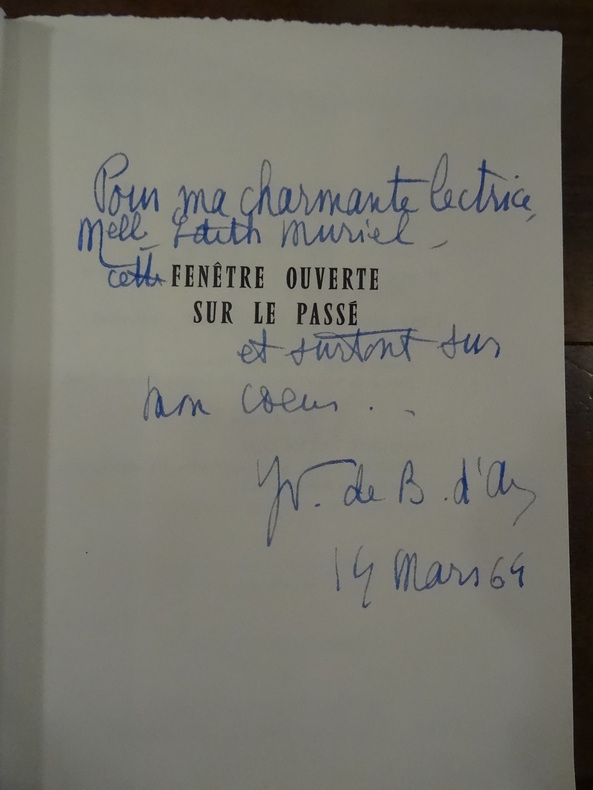 Pour ma charmante lectrice,
Melle Edith Muriel -
cette FENÊTRE OUVERTE
SUR LE PASSÉ
et surtout sur
mon coeur . .
Yv. de B. d'
14 Mars 64